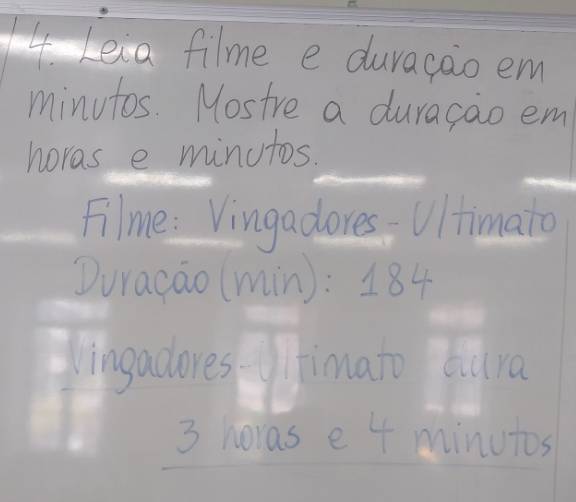 14. Leia filme e duração em
minutos. Mostre a duração em
horas e minutos.
Filme: Vingadores - Ultimato
Duração (min): 184
Vingadores - Ultimato dura
3 horas e 4 minutos